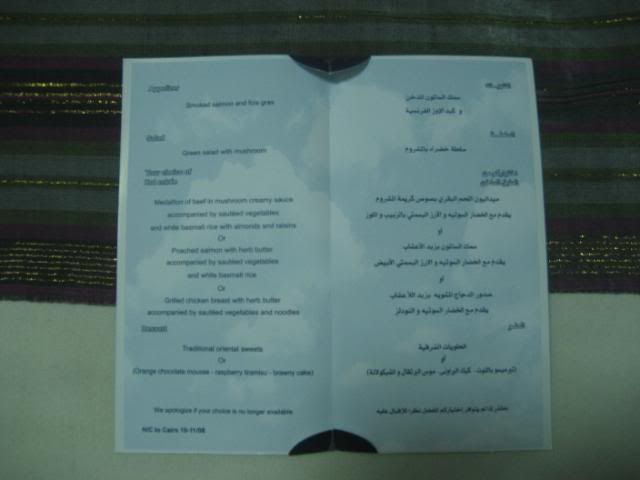 Appetizer
Smoked salmon and foie gras
Salad
Green salad with mushroom
Your choice of
Hot entrée
Medallion of beef in mushroom creamy sauce
accompanied by sautéed vegetables
and white basmati rice with almonds and raisins
Or
Poached salmon with herb butter
accompanied by sautéed vegetables
and white basmati rice
Or
Grilled chicken breast with herb butter
accompanied by sautéed vegetables and noodles
Dessert
Traditional oriental sweets
Or
(Orange chocolate mousse - raspberry tiramisu - brawny cake)
We apologize if your choice is no longer available
N/C to Cairo 10-11/08
سمك السالمون المدخن
و كبد الاوز الفرنسية
السلطـة
سلطة خضراء بالمشروم
ميداليون اللحم البقري بصوص كريمة المشروم
يقدم مع الخضار السوتيه و الارز البسمتي بالزبيب و اللوز
أو
سمك السالمون بزبد الأعشاب
يقدم مع الخضار السوتيه و الارز البسمتي الأبيض
أو
صدور الدجاج المشويه بزبد الأعشاب
يقدم مع الخضار السوتيه و النودلز
الحلو
الحلويات الشرقية
أو
(تيرميسو بالتوت - كيك البراونى- موس البرتقال و الشيكولاتة)